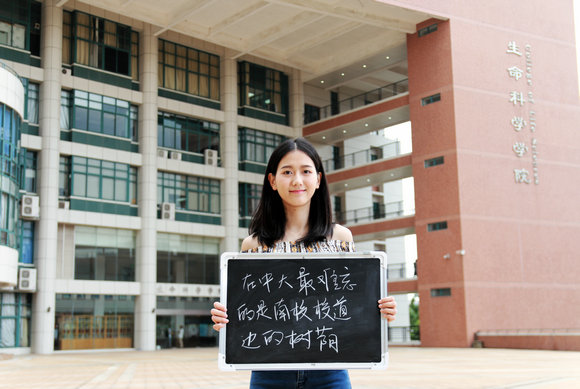 生命科學學院
在中大最难忘
的是南校校道
边的树荫